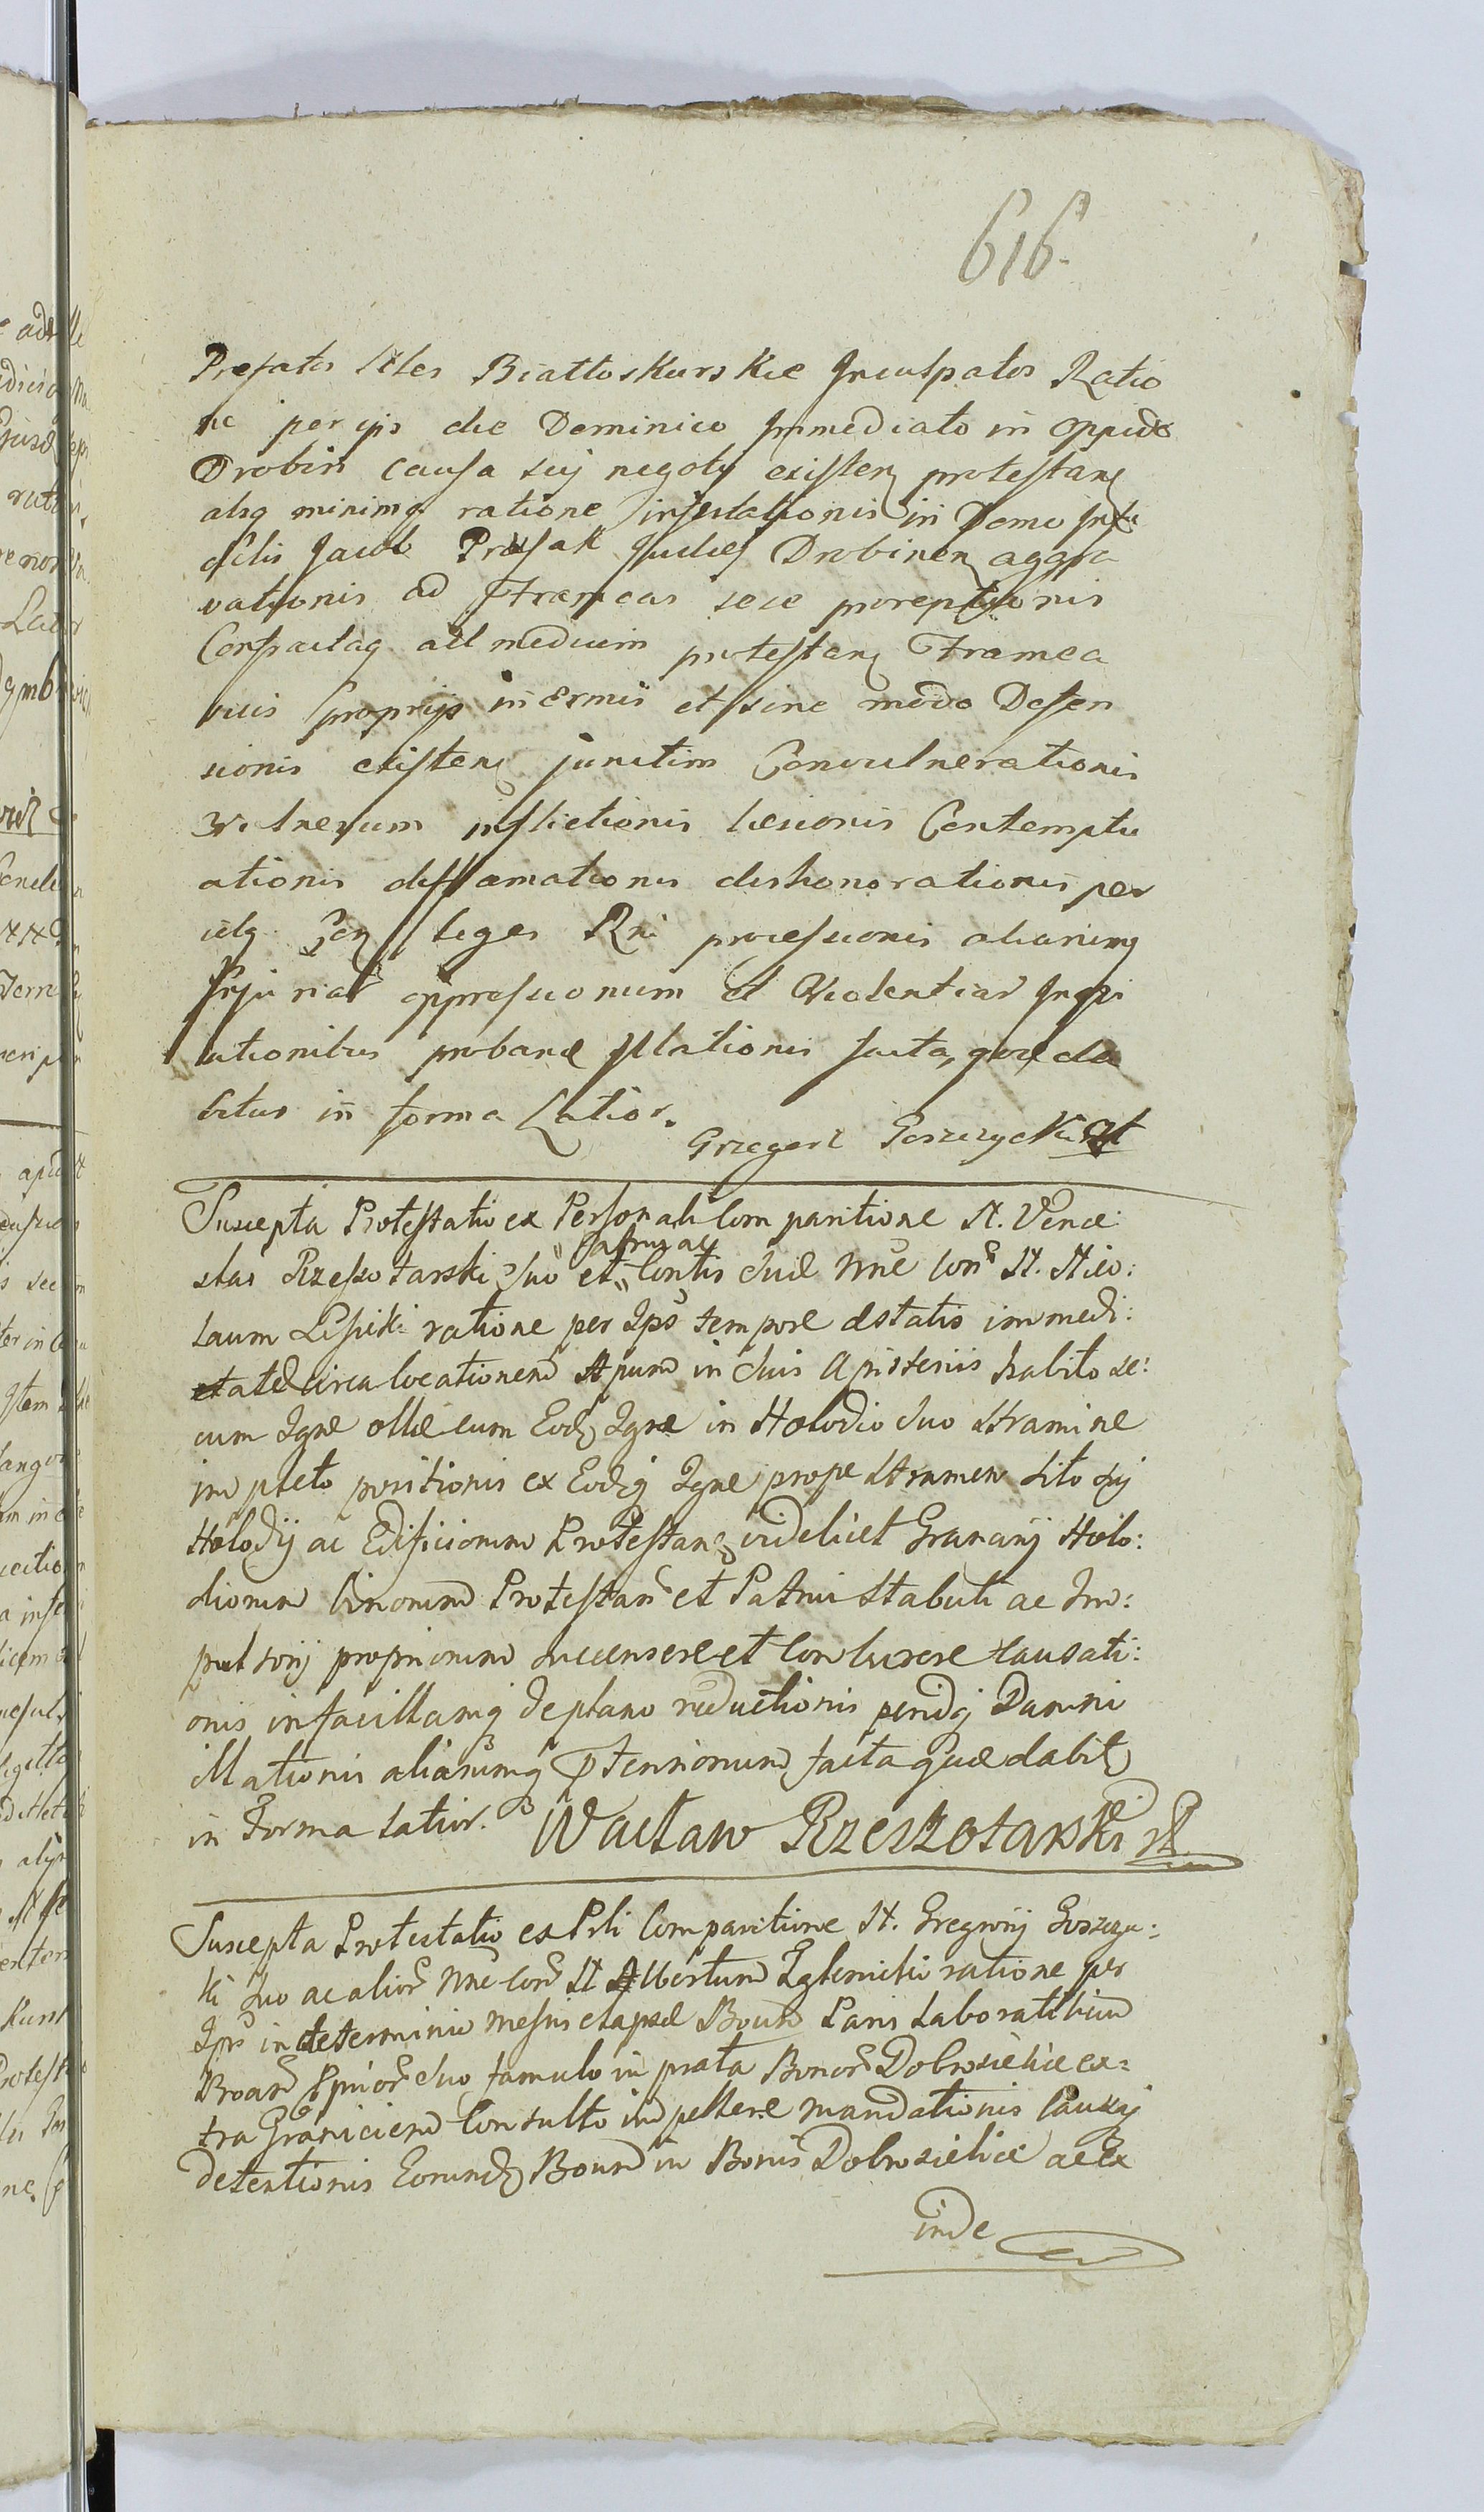 616.
Prefatos Ittes Białłoskurskie Inculpatos Ratio
ne per ips die Dominico Immediato in oppido
Drobin causa sui negoty existen protestan
absq minimq ratione infestationis in Domo Infi
delis Jacob Prusak Judei Drobinen aggra
vationis ad Frameas sese proreptionis
Consrael medium protestan Framea
bus proprijs inermis et sine modo Defen
sionis existen junctim Convulnerationis
Vulnerum inflictionis Laesionis Contemptu
ationis diffamationis dishonorationis per
idq Pen leges Rni processionis aliarumq
Injuriar oppressionum et Violentiar Inqui
sitionibus proband Illationis facta, que da
bitur in forma Latior.
Grzegorz Goszczycki
Suscepta Protestatio ex Personali Comparitione N. Vence:
slai Rzeszotarski Suo et Contis sui Nne Con N. Nico:
Patrui ac
laum Lipski ratione per Ips tempore aestatis immedi:
etate circa locationem Apum in suis Apisteriis habito se:
cum Igne ollae cum Eod Igne in Holodio suo stramine
impleto positionis ex Eodq Igne prope stramen sito sui
Holodij ac Edificiorum Protestan videlicet Granarij Holo:
diorum binorum Protestan et Patrui stabuli ac Im:
pulsorij propriorum succensere et Comburere causati:
onis in facillamq de plano reductionis peridq Damni
illationis aliarumq Ptensionum facta que dabit
in Forma latior. Wacław Rzeszotarski
Suscepta Protestatio ex Prli Comparitione N. Gregorij Goszczy:
ki Suo ac alior Nne Con N Albertum Zglenicki ratione per
Ips in determinio Mensis elapse Boum Paris Laboratitium
Broar Pprior suo famulo in prata Bonor Dobrosielice ex=
tra Graniciem Consulto impellere mandationis Causaq
detentionis Eorund Boum in Bonis Dobrosielice ac ex
inde